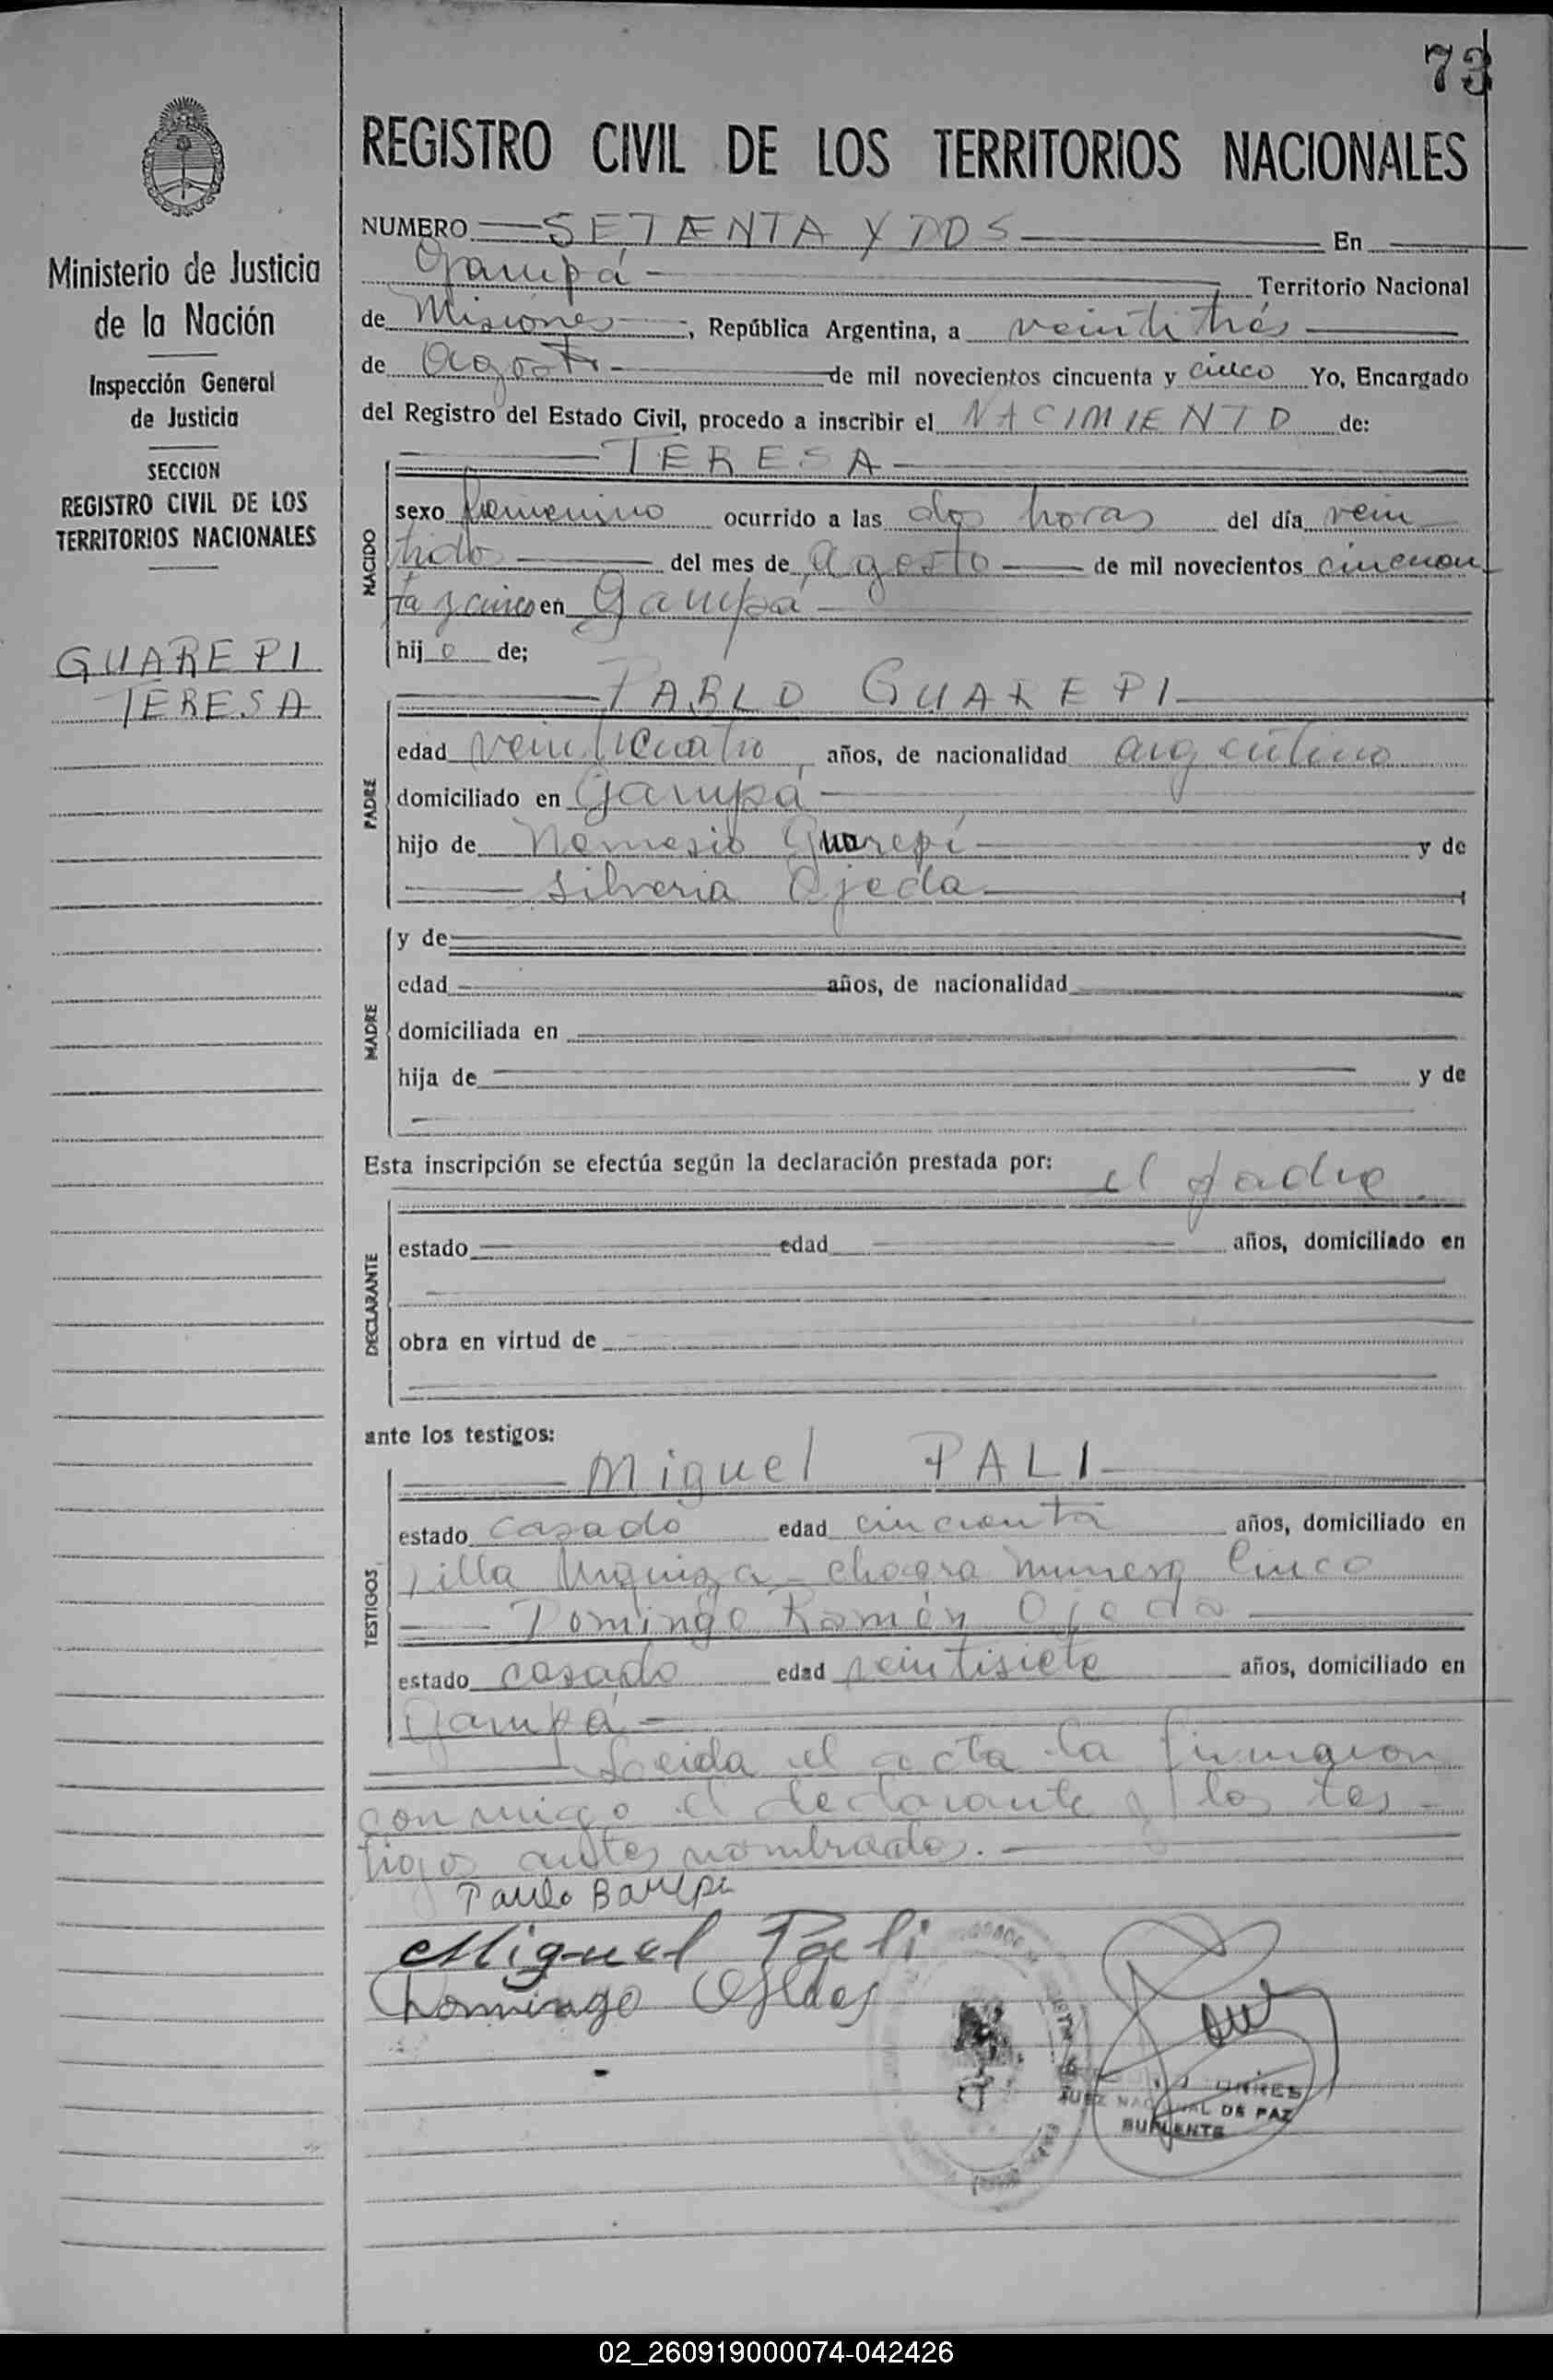 73
REGISTRO CIVIL DE LOS TERRITORIOS NACIONALES
Ministerio de Justicia
de la Nación
Inspección General
de Justicia
SECCION
REGISTRO CIVIL DE LOS
TERRITORIOS NACIONALES
GUAREPI
TERESA
NUMERO SETENTA Y DOS En
Garupá Territorio Nacional
de Misiones, República Argentina, a veintitrés
de Agosto de mil novecientos cincuenta y cinco Yo, Encargado
del Registro del Estado Civil, procedo a inscribir el NACIMIENTO de:
NACIDO
TERESA
sexo femenino ocurrido a las dos horas del día vein
tidos del mes de Agosto de mil novecientos cincuen
ta y cinco en Garupá
hij o de;
PADRE
PABLO GUAREPI
edad veinticuatro años, de nacionalidad argentino
domiciliado en Garupá
hijo de Nemesio Guarepí y de
Silveria Ojeda
MADRE
y de
edad años, de nacionalidad
domiciliada en
hija de y de
Esta inscripción se efectúa según la declaración prestada por: el padre.
DECLARANTE
estado edad años, domiciliado en
obra en virtud de
ante los testigos:
TESTIGOS
Miguel PALI
estado casado edad cincuenta años, domiciliado en
Villa Urquiza - chacra numero Cinco
Domingo Ramón Ojeda
estado casado edad veintisiete años, domiciliado en
Garupá
Leida el acta la firmaron
conmigo el declarante y los tes-
tigos antes nombrados.
Miguel Pali
Domingo
JUEZ NACIONAL DE PAZ
SUPLENTE
02_260919000074-042426